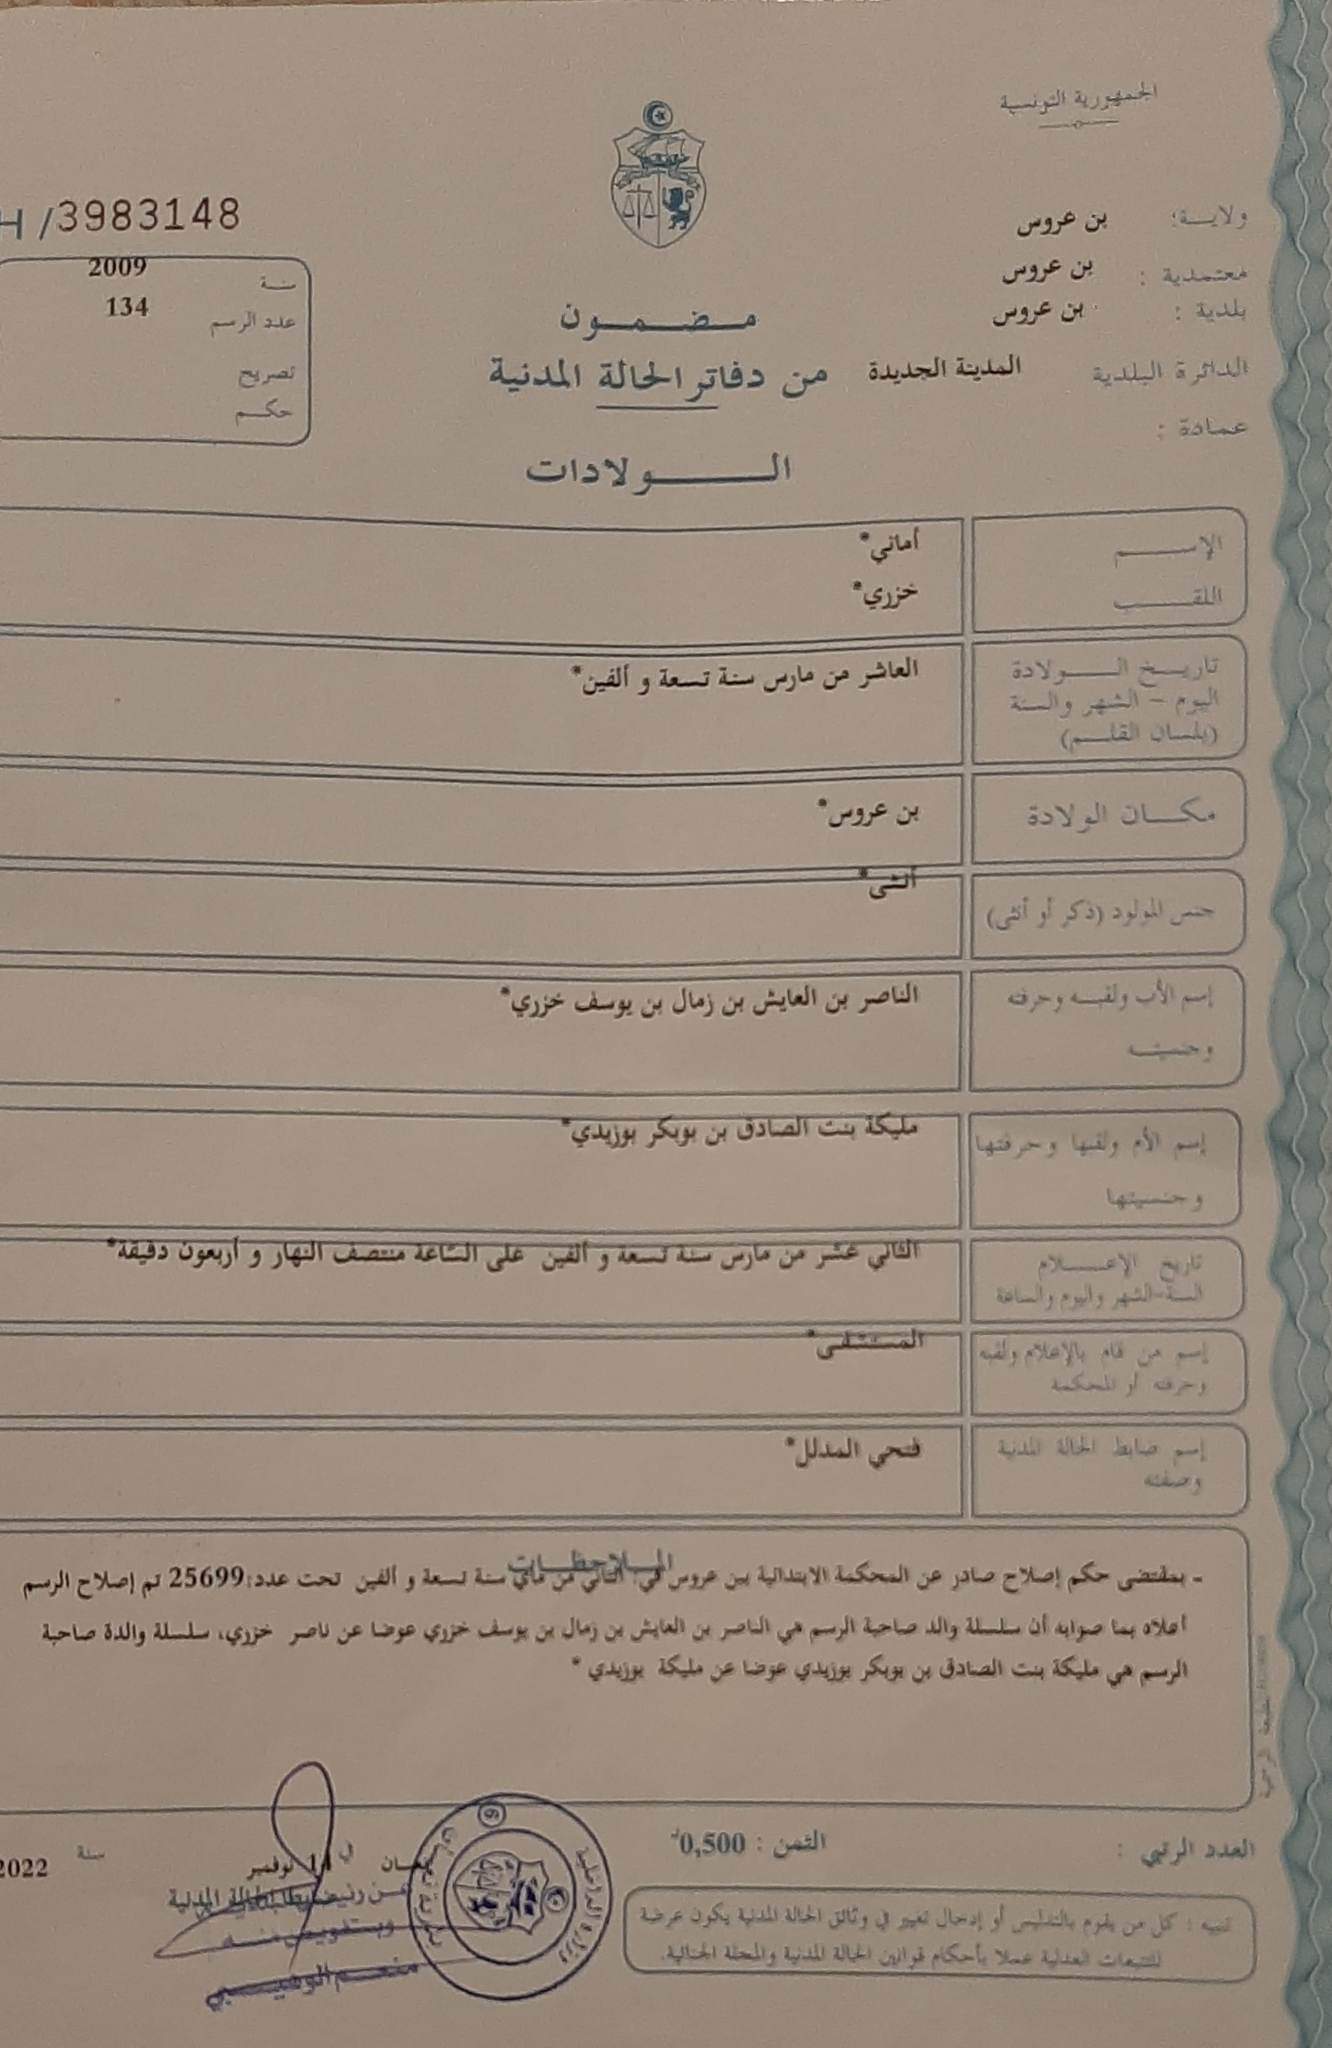 الجمهورية التونسية
H/3983148
ولايــة: بن عروس
معتمدية : بن عروس
بلدية : بن عروس
الدائرة البلدية المدينة الجديدة
عمادة :
سنة 2009
عدد الرسم 134
تصريح
حكم
مضمون
من دفاتر الحالة المدنية
الولادات
الإسم أماني*
اللقب خزري*
تاريخ الولادة العاشر من مارس سنة تسعة و ألفين*
اليوم - الشهر والسنة
(بلسان القلم)
مكان الولادة بن عروس*
جنس المولود (ذكر أو أنثى) أنثى*
إسم الأب ولقبه وحرفته الناصر بن العايش بن زمال بن يوسف خزري*
وجنسيته
إسم الأم ولقبها وحرفتها مليكة بنت الصادق بن بوبكر بوزيدي*
وجنسيتها
تاريخ الإعلام الثاني عشر من مارس سنة تسعة و ألفين على الساعة منتصف النهار و أربعون دقيقة*
السنة-الشهر واليوم والساعة
إسم من قام بالإعلام ولقبه المستشفى*
وحرفته أو المحكمة
إسم ضابط الحالة المدنية فتحي المدلل*
وصفته
الملاحظات
- بمقتضى حكم إصلاح صادر عن المحكمة الابتدائية ببن عروس في: الثاني من ماي سنة تسعة و ألفين تحت عدد:25699 تم إصلاح الرسم
أعلاه بما صوابه أن سلسلة والد صاحبة الرسم هي الناصر بن العايش بن زمال بن يوسف خزري عوضا عن ناصر خزري، سلسلة والدة صاحبة
الرسم هي مليكة بنت الصادق بن بوبكر بوزيدي عوضا عن مليكة بوزيدي *
العدد الرتبي :
الثمن : 0,500
في نوفمبر سنة 2022
ضابط الحالة المدنية
وبتفويض منه
منعم الوهيبي
وزارة الداخلية
6
تنبيه : كل من يقوم بالتدليس أو إدخال تغيير في وثائق الحالة المدنية يكون عرضة
للتتبعات العدلية عملا بأحكام قوانين الحالة المدنية والمجلة الجنائية.